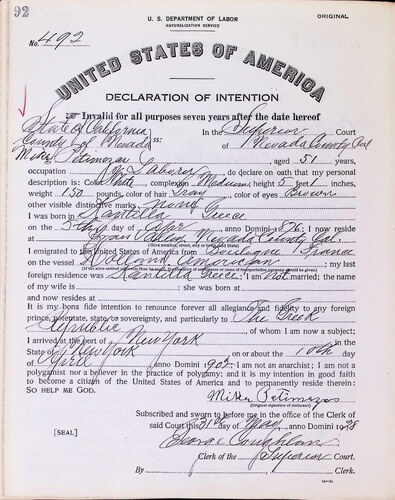 92
U. S. DEPARTMENT OF LABOR
NATURALIZATION SERVICE
ORIGINAL
No. 492
UNITED STATES OF AMERICA
DECLARATION OF INTENTION
Invalid for all purposes seven years after the date hereof
State of California
County of Nevada ss:
In the Superior Court
of Nevada County Cal
I, Mike , aged 51 years,
occupation Laborer, do declare on oath that my personal
description is: Color White, complexion Medium, height 5 feet 1 inches,
weight 150 pounds, color of hair Gray, color of eyes Brown
other visible distinctive marks none
I was born in Greece
on the 5th day of Apr, anno Domini 1876; I now reside
at Grass Valley Nevada County Cal.
I emigrated to the United States of America from Boulogne France
on the vessel Holland American; my last
foreign residence was Greece; I am not married; the name
of my wife is ; she was born at
and now resides at
It is my bona fide intention to renounce forever all allegiance and fidelity to any foreign
prince, potentate, state, or sovereignty, and particularly to The Greek
Republic, of whom I am now a subject;
I arrived at the port of New York, in the
State of New York, on or about the 10th day
of April, anno Domini; I am not an anarchist; I am not a
polygamist nor a believer in the practice of polygamy; and it is my intention in good faith
to become a citizen of the United States of America and to permanently reside therein:
SO HELP ME GOD.
Mike
(Original signature of declarant)
Subscribed and sworn to before me in the office of the Clerk of
said Court this 31st day of May, anno Domini 1928
[SEAL]
George Coughlan
Clerk of the Superior Court.
By , Clerk.